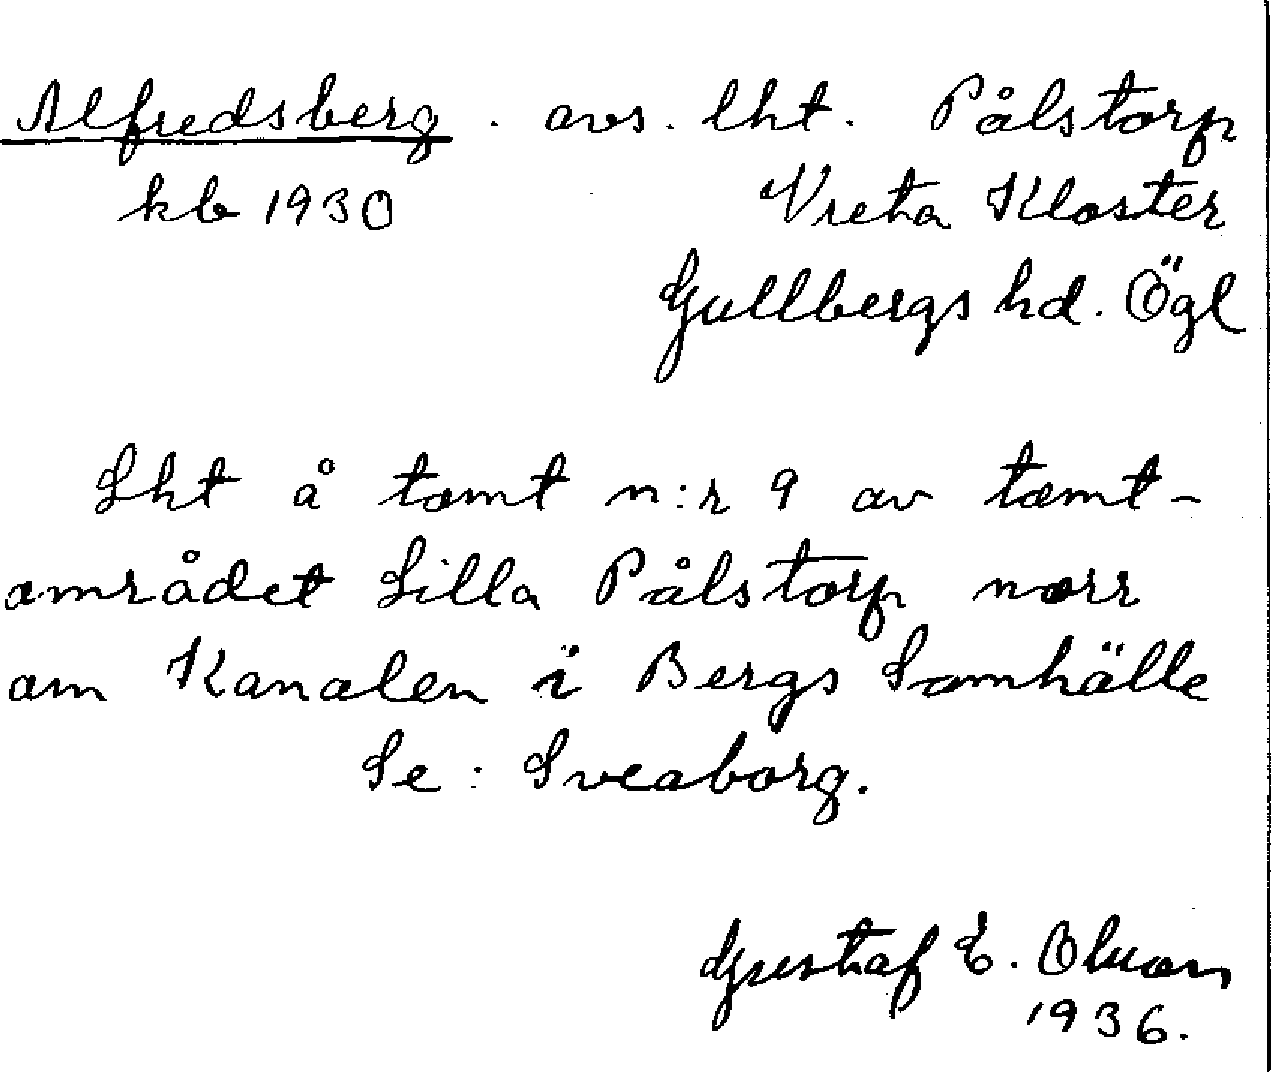 Alfredsberg . avs. lht. Pålstorp
kb 1930 Vreta Kloster
Gullbergs hd. Ögl
Lht å tomt n:r 9 av tomt-
området Lilla Pålstorp norr
om Kanalen i Bergs Samhälle
Se : Sveaborg.
Gustaf E. Olsson
1936.